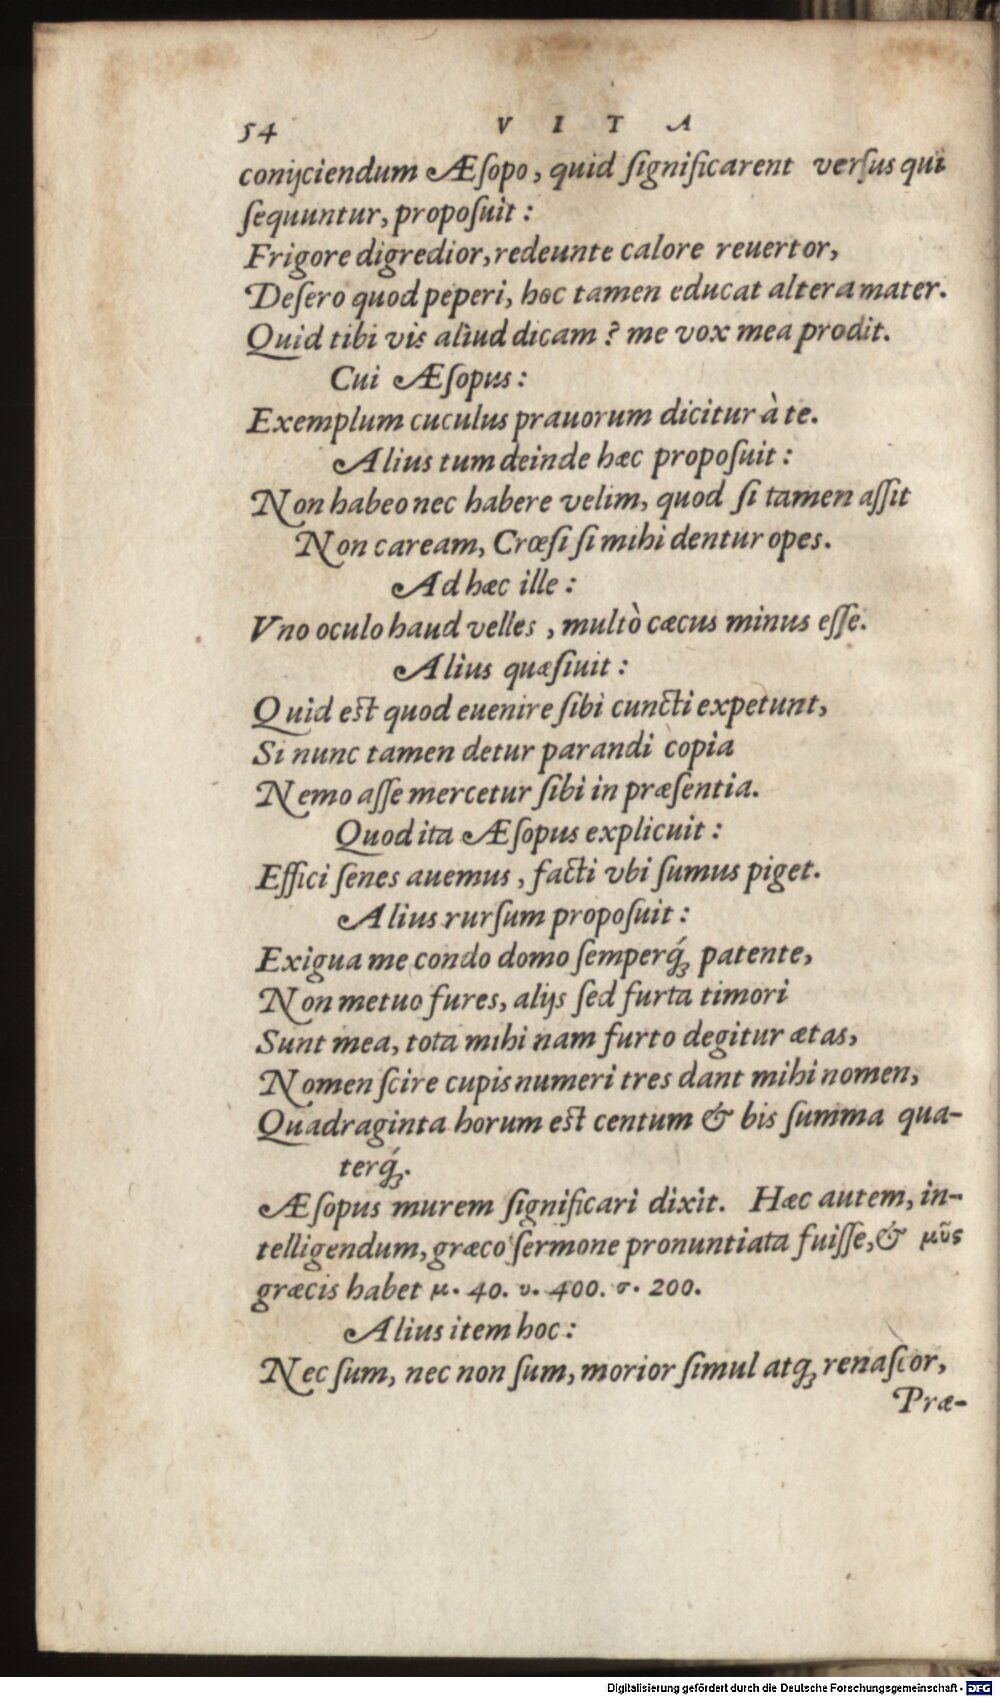 54 VITA
conijciendum Æſopo, quid ſignificarent verſus qui
ſequuntur, propoſuit:
Frigore digredior, redeunte calore reuertor,
Deſero quod peperi, hoc tamen educat altera mater.
Quid tibi vis aliud dicam? me vox mea prodit.
Cui Æſopus:
Exemplum cuculus prauorum dicitur à te.
Alius tum deinde hæc propoſuit:
Non habeo nec habere velim, quod ſi tamen aſſit
Non caream, Crœſi ſi mihi dentur opes.
Ad hæc ille:
Vno oculo haud velles, multò cæcus minus eſſe.
Alius quæſiuit:
Quid est quod euenire ſibi cuncti expetunt,
Si nunc tamen detur parandi copia
Nemo aſſe mercetur ſibi in præſentia.
Quod ita Æſopus explicuit:
Effici ſenes auemus, facti vbi ſumus piget.
Alius rurſum propoſuit:
Exigua me condo domo ſemperq́; patente,
Non metuo fures, alijs ſed furta timori
Sunt mea, tota mihi nam furto degitur ætas,
Nomen ſcire cupis numeri tres dant mihi nomen,
Quadraginta horum est centum & bis ſumma qua-
terq́;.
Æſopus murem ſignificari dixit. Hæc autem, in-
telligendum, græco ſermone pronuntiata fuiſſe, & μῦς
græcis habet μ. 40. υ. 400. σ. 200.
Alius item hoc:
Nec ſum, nec non ſum, morior ſimul atq; renaſcor,
Præ-
Digitalisierung gefördert durch die Deutsche Forschungsgemeinschaft - DFG